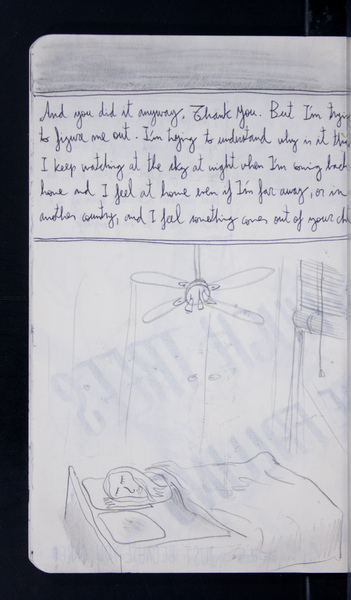 And you did it anyway. Thank you. But I'm
to figure me out. I'm trying to understand why is it
I keep watching at the sky at night when I'm coming back
home and I feel at home even if I'm far away, or in
another country, and I feel something comes out of your